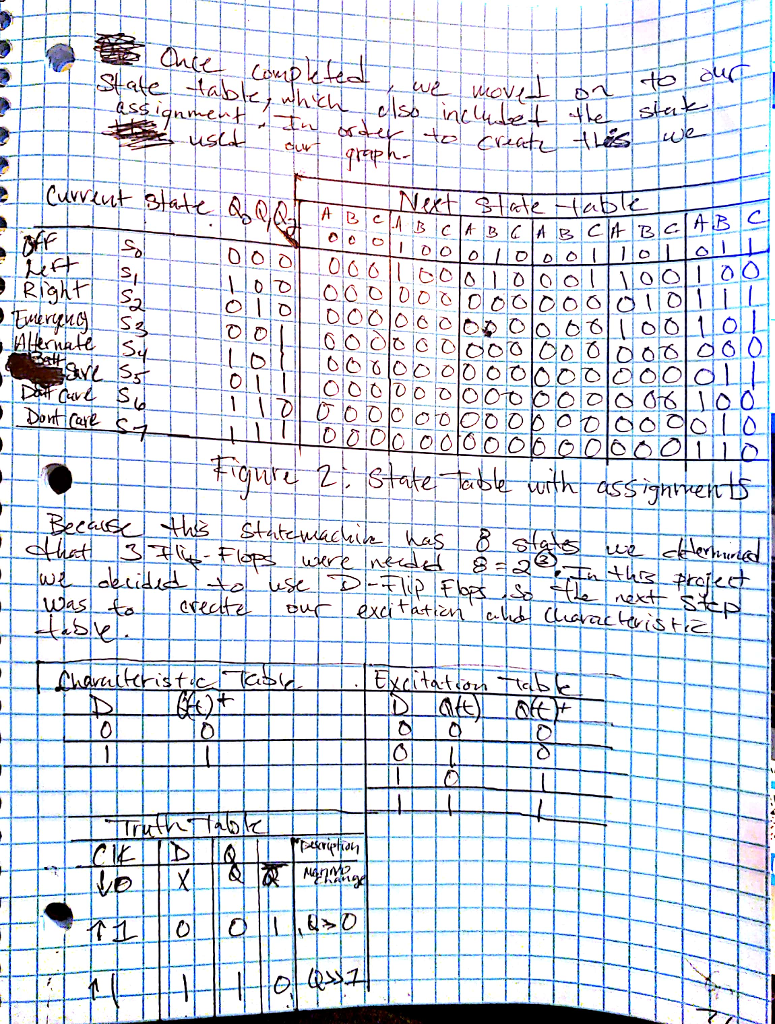 Once completed, we moved on to our
State table, which also included the state
assignment. In order to create this we
used our graph.
Current State Q0 Q1 Q2 Next State table
A B C A B C A B C A B C A B C A B C
0 0 0 1 0 0 0 1 0 0 0 1 1 0 1 0 1 1
Off S0 0 0 0 0 0 0 1 0 0 0 1 0 0 0 1 1 0 0 1 0 0
Left S1 1 0 0 0 0 0 0 0 0 0 0 0 0 0 0 0 1 0 1 1 1
Right S2 0 1 0 0 0 0 0 0 0 0 0 0 0 0 0 1 0 0 1 0 1
Emergency S3 0 0 1 0 0 0 0 0 0 0 0 0 0 0 0 0 0 0 0 0 0
Alternate S4 1 0 1 0 0 0 0 0 0 0 0 0 0 0 0 0 0 0 0 1 1
Batt Save S5 0 1 1 0 0 0 0 0 0 0 0 0 0 0 0 0 0 0 1 0 0
Dont Care S6 1 1 0 0 0 0 0 0 0 0 0 0 0 0 0 0 0 0 0 1 0
Dont Care S7 1 1 1 0 0 0 0 0 0 0 0 0 0 0 0 0 0 0 1 1 0
Figure 2: State Table with assignments
Because this Statemachine has 8 states we determined
that 3 Flip-Flops were needed 8=2³. In this project
we decided to use D-Flip Flops. So the next step
was to create our excitation and characteristic
table.
Characteristic Table
D Q(t)+
0 0
1 1
Excitation Table
D Q(t) Q(t)+
0 0 0
0 1 0
1 0 1
1 1 1
Truth Table
Clk D Q Description
↓0 X Q Q̅ No Change
↑1 0 0 1 Q>0
↑1 1 1 0 Q>>1